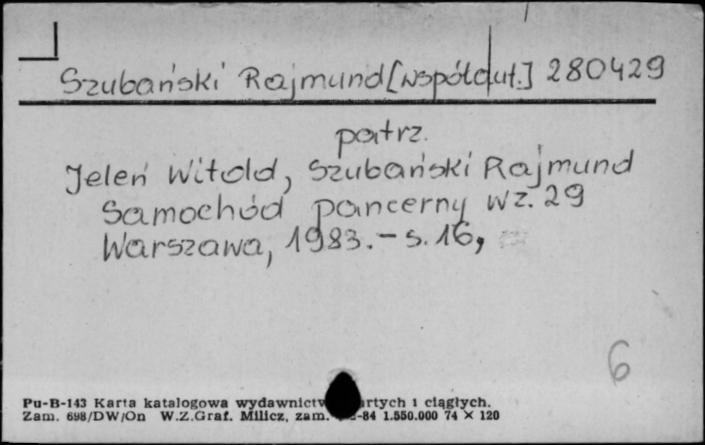 Szubański Rajmund [współaut.] 280429
patrz.
Jeleń Witold, Szubański Rajmund
Samochód pancerny wz. 29
Warszawa, 1983. - s. 16,
6
Pu-B-143 Karta katalogowa wydawnictw i ciągłych.
Zam. 698/DW/On W.Z.Graf. Milicz, zam. -84 1.550.000 74 × 120